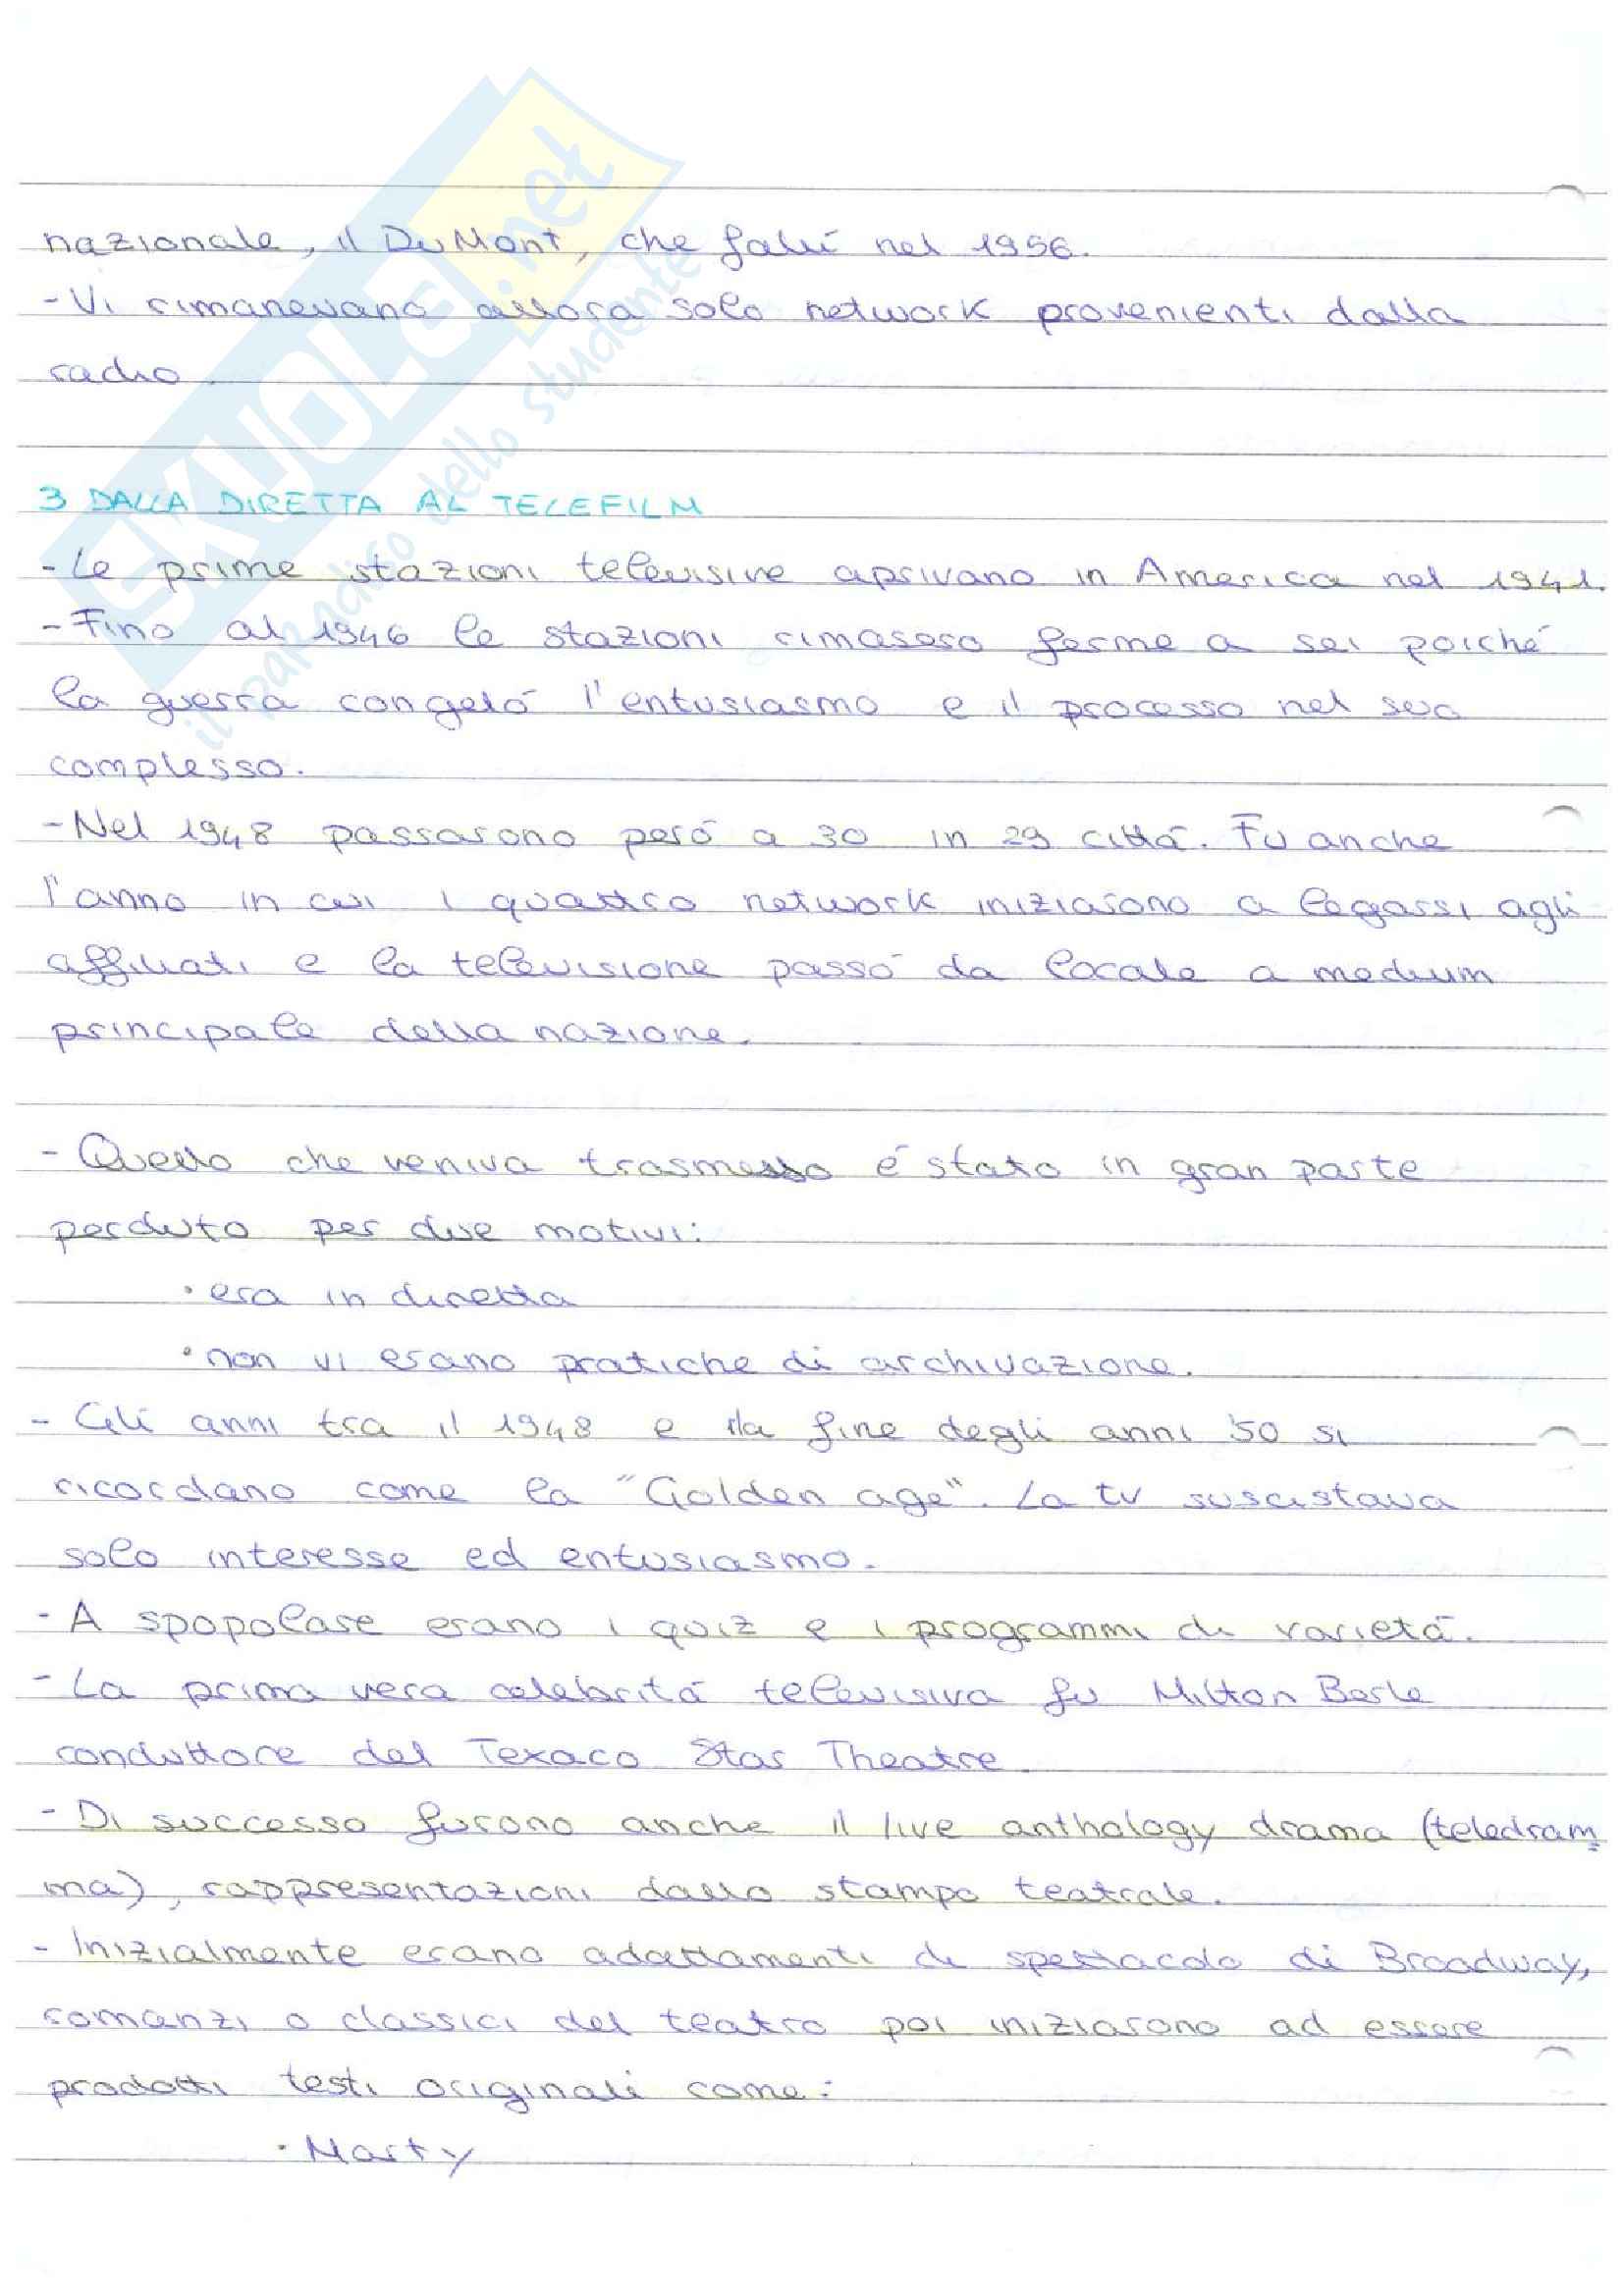 nazionale, il DuMont, che fallì nel 1956.
- Vi rimanevano allora solo network provenienti dalla
radio.
3 DALLA DIRETTA AL TELEFILM
- Le prime stazioni televisive aprivano in America nel 1941.
- Fino al 1946 le stazioni rimasero ferme a sei poiché
la guerra congeló l'entusiasmo e il processo nel suo
complesso.
- Nel 1948 passarono peró a 30 in 29 cittá. Fu anche
l'anno in cui i quattro network iniziarono a legarsi agli
affiliati e la televisione passó da locale a medium
principale della nazione.
- Quello che veniva trasmesso é stato in gran parte
perduto per due motivi:
• era in diretta
• non vi erano pratiche di archiviazione.
- Gli anni tra il 1948 e la fine degli anni '50 si
ricordano come la "Golden age". La tv suscistava
solo interesse ed entusiasmo.
- A spopolare erano i quiz e i programmi di varietá.
- La prima vera celebritá televisiva fu Milton Berle
conduttore del Texaco Star Theatre.
- Di successo furono anche il live anthology drama (teledram
ma), rappresentazioni dallo stampo teatrale.
- Inizialmente erano adattamenti di spettacolo di Broadway,
romanzi o classici del teatro poi iniziarono ad essere
prodotti testi originali come:
• Marty
SKUOLA.net
il paradiso dello studente